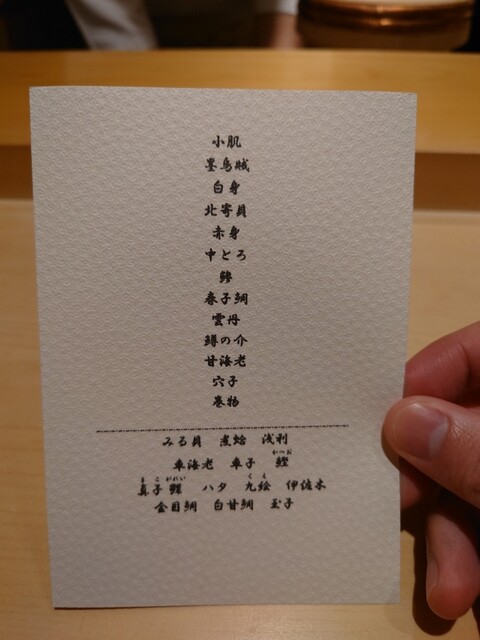 小肌
墨烏賊
白身
北寄貝
赤身
中とろ
鯵
春子鯛
雲丹
鱒の介
甘海老
穴子
巻物
みる貝 煮蛤 浅利
車海老 車子 鰹
かつお
真子鰈 ハタ 九絵 伊佐木
まこがれい くえ
金目鯛 白甘鯛 玉子